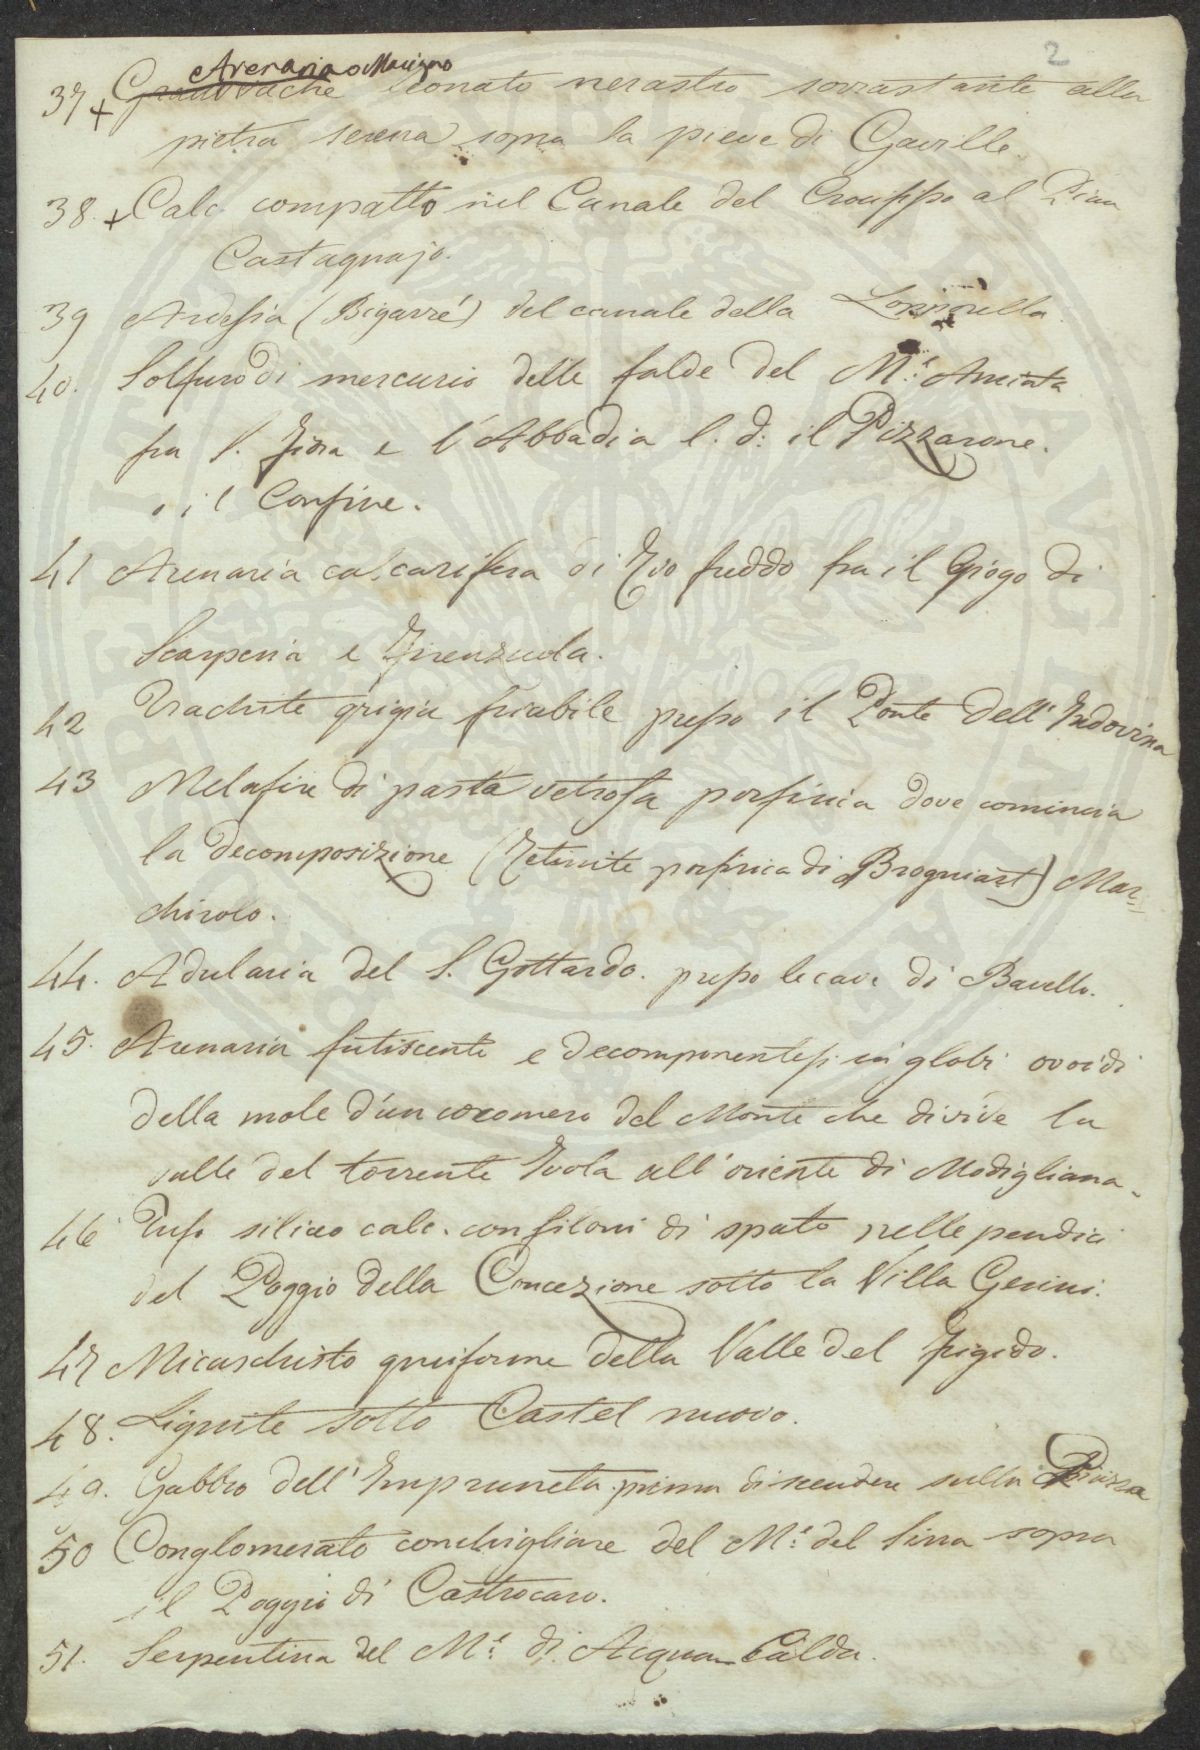 2
Arenaria o Macigno
37 + Grauwache lionato nerastro sovrastante alla
pietra serena sopra la pieve di Gaville.
38. + Calc. compatto nel Canale del Crocifisso al Pian
Castagnajo.
39 Ardesia (Bigarré) del canale della
40. Solfuro di mercurio delle falde del M.e Amiata
fra S. Fiora e l'Abbadia l. d: il Pizzarone.
o il Confine.
41 Arenaria calcarifera di Rio freddo fra il Giogo di
Scarperia e Firenzuola.
42 Trachite grigia friabile presso il Ponte dell'Indovina
43 Melafiro di pasta vetrosa porfirica dove comincia
la decomposizione (Retinite porfirica di Brogniart) Mar-
chirolo.
44. Adularia del S. Gottardo. presso le cave di Baveno.
45. Arenaria fatiscente e decomponentesi in globi ovoidi
della mole d'un cocomero del Monte che divide la
valle del torrente Ivola all'oriente di Modigliana.
46 Tufo siliceo calc. con filoni di spato nelle pendici
del Poggio della Concezione sotto la Villa Gerini.
47 Micaschisto gneiforme della Valle del Frigido.
48. Lignite sotto Castel nuovo.
49. Gabbro dell'Impruneta prima discendere sulla Piazza
50 Conglomerato conchigliare del M.e del Sirra sopra
il Poggio di Castrocaro.
51. Serpentina del M.e di Acqua Calda.